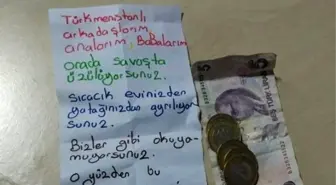 Türkmenistanlı
arkadaşlarım
analarım, Babalarım
orada savaşta
üzülüyorsunuz.
Sıcacık evinizden
yatağınızdan ayrılıyor
sunuz.
Bizler gibi okuya-
mıyorsunuz.
O yüzden bu
5